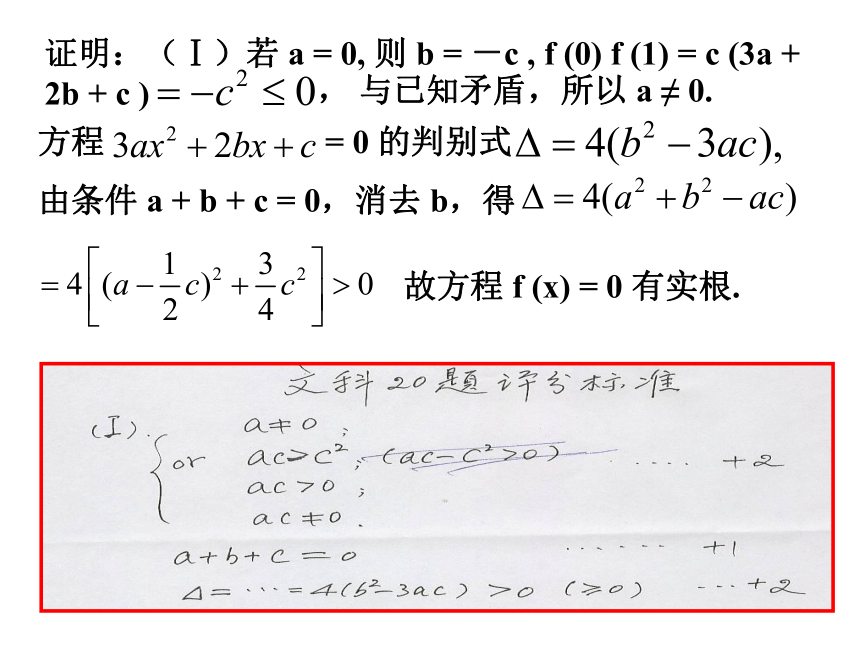 证明：（Ⅰ）若 a = 0, 则 b = －c , f (0) f (1) = c (3a +
2b + c ) = −c² ≤ 0， 与已知矛盾，所以 a ≠ 0.
方程 3ax² + 2bx + c = 0 的判别式 Δ = 4(b² − 3ac),
由条件 a + b + c = 0，消去 b，得 Δ = 4(a² + b² − ac)
= 4[(a − 1/2 c)² + 3/4 c²] > 0 故方程 f (x) = 0 有实根.
文科20题评分标准
(Ⅰ). a≠0 ;
or ac>c² ; (ac−c²>0) ‥‥ +2
ac>0 ;
ac≠0 .
a+b+c=0 ‥‥‥ +1
Δ=⋯=4(b²−3ac)>0 (≥0) ⋯+2